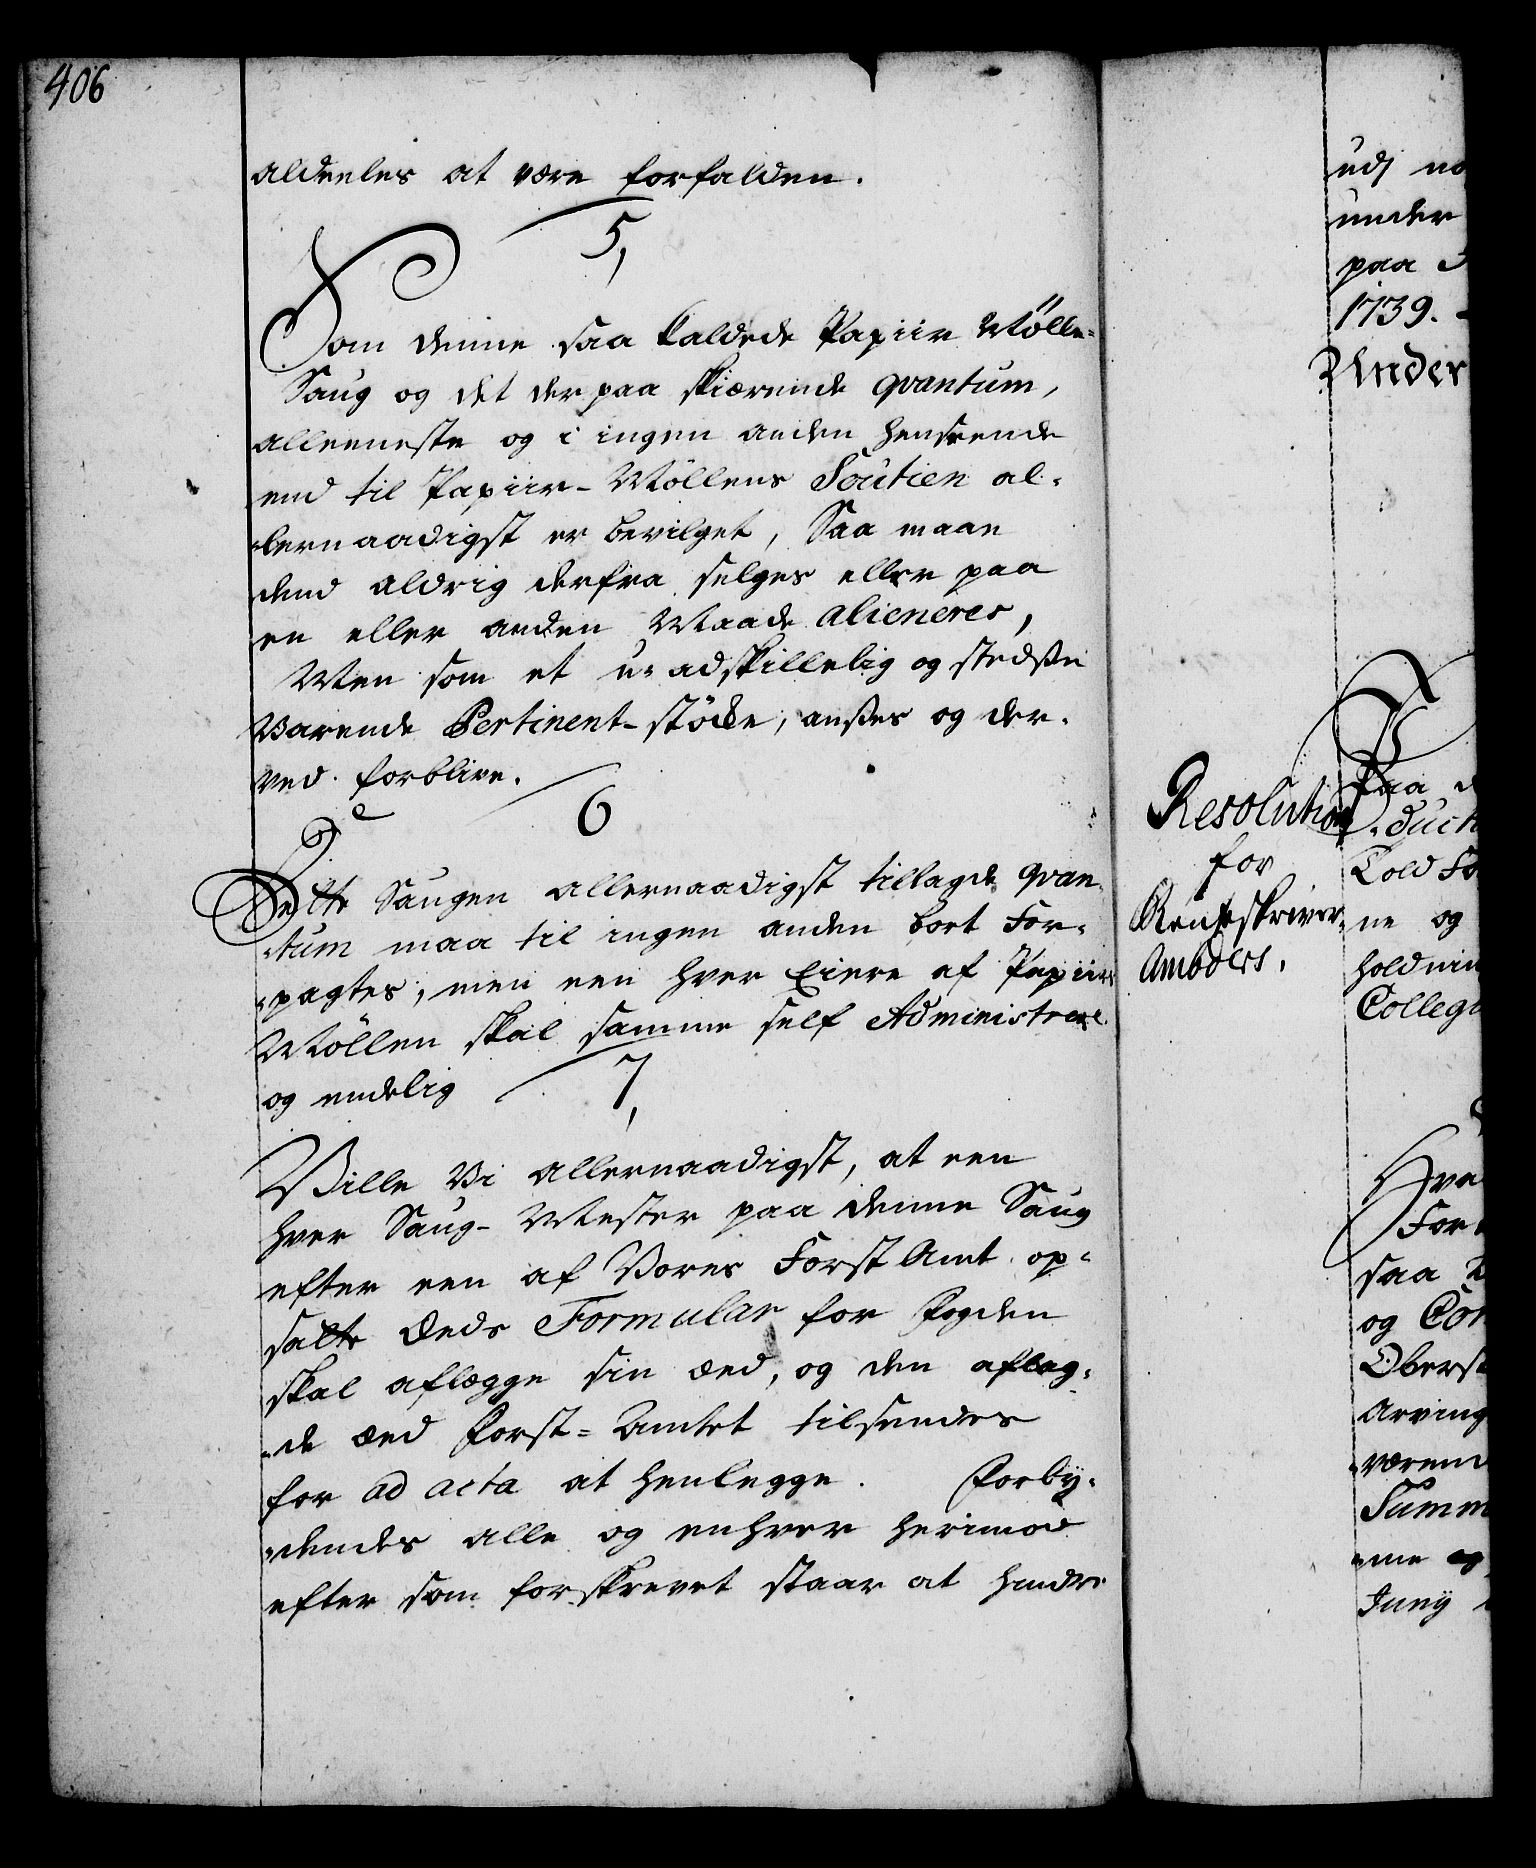 406
aldeeles at være forfalden.
5,
Som denne saa kaldede Papiir Mölle-
Saug og det derpaa skiærende qvantum,
alleeneste og i ingen anden henseende
end til Papiir-Möllens Soutien al-
lernaadigst er bevilget, Saa maae
dend aldrig derfra selges eller paa
en eller anden Maade alieneres,
Men som et u-adskillelig og stedsse
varende Pertinent-stöcke, ansees og der-
ved forblive.
6
Dette Saugen allernaadigst tillagde qvan-
tum maa til ingen anden bort For-
pagtes, men een hver Eiere af Papiir
Möllen skal samme self Administrere.
og endelig
7,
Ville Vi allernaadigst, at een
hver Saug-Mester paa denne Saug
efter een af Vores Forst Amt op-
satte Eeds Formular for Fogden
skal aflægge sin æed, og den aflag-
de æed Forst-Amtet tilsendes
for ad acta at henlegge. Forby-
dendes alle og enhver herimod
efter som forskrevet staar at hindre
Resolution
for
Renteskriver
Ambders.
udj
under
paa
1739.
Under
Paa
Told
ne og
holdnin
Collegi
Hva
For
saa
og Com
Oberst
Arving
værend
Summ
me og
Junÿ